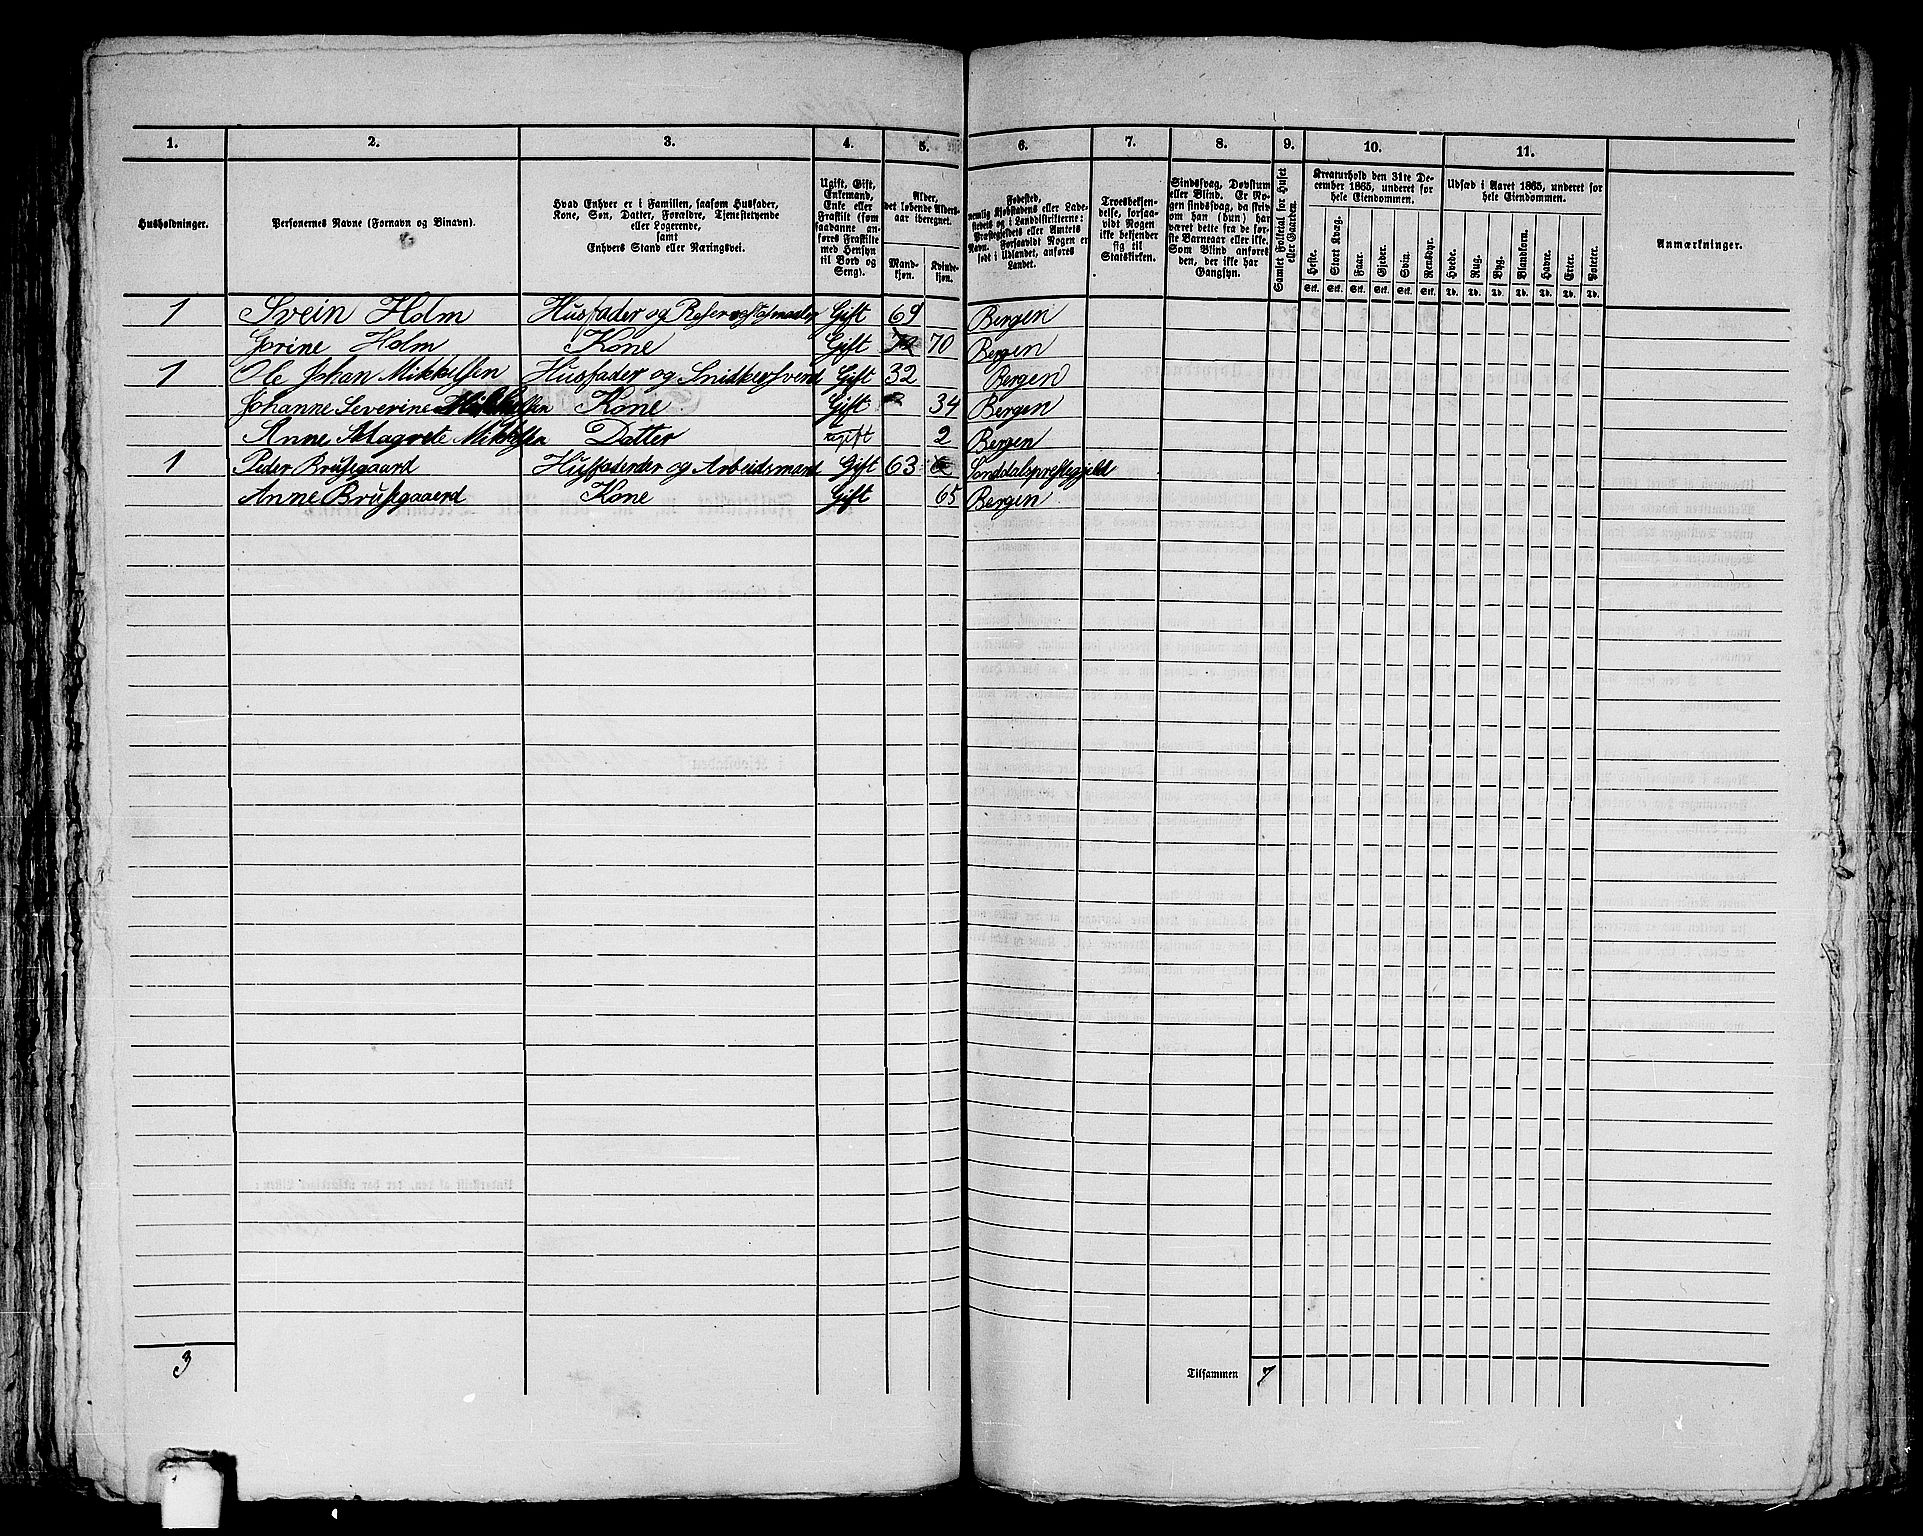 1. 2. 3. 4. 5. 6. 7. 8. 9. 10. 11.
Husholdninger.
Personernes Navne (Fornavn og Binavn).
Hvad Enhver er i Familien, saasom Husfader,
Kone, Søn, Datter, Forældre, Tjenestetyende
eller Logerende,
samt
Enhvers Stand eller Næringsvei.
Ugift, Gift,
Enkemand,
Enke eller
Fraskilt (som
saadanne an-
føres Fraskilte
med Hensyn
til Bord og
Seng).
Alder,
det løbende Alders-
aar iberegnet.
Mand-
kjøn.
Kvinde-
kjøn.
Fødested,
nemlig Kjøbstadens eller Lade-
stedets og i Landdistrikterne:
Præstegjeldets eller Amtets
Navn. Forsaavidt Nogen er
født i Udlandet, anføres
Landet.
Troesbekjen-
delse, forsaa-
vidt Nogen
ikke bekjender
sig til
Statskirken.
Sindssvag, Døvstum
eller Blind. Er No-
gen sindssvag, da skriv
om han (hun) har
været dette fra de før-
ste Barneaar eller ikke.
Som Blind anføres
den, der ikke har
Gangsyn.
Samlet Folketal for Huset
eller Gaarden.
Kreaturhold den 31te De-
cember 1865, underet for
hele Eiendommen.
Heste. Stort Kvæg. Faar. Gjeder. Svin. Rensdyr.
Stk. Stk. Stk. Stk. Stk. Stk.
Udsæd i Aaret 1865, underet for
hele Eiendommen.
Hvede. Rug. Byg. Blandkorn. Havre. Erter. Poteter.
Td. Td. Td. Td. Td. Td. Td.
Anmærkninger.
1 Svein Holm Husfader og Gift 69 Bergen
Gorine Holm Kone Gift 70 Bergen
1 Ole Johan Mikkelsen Husfader og Snidkersvend Gift 32 Bergen
Johanne Severine Mikkelsen Kone Gift 34 Bergen
Anne Magrete Mikkelsen Datter ugift 2 Bergen
1 Peder Brusegaard og Arbeidsmand Gift 63
Anne Brusegaaerd Kone Gift 65 Bergen
3 Tilsammen 7